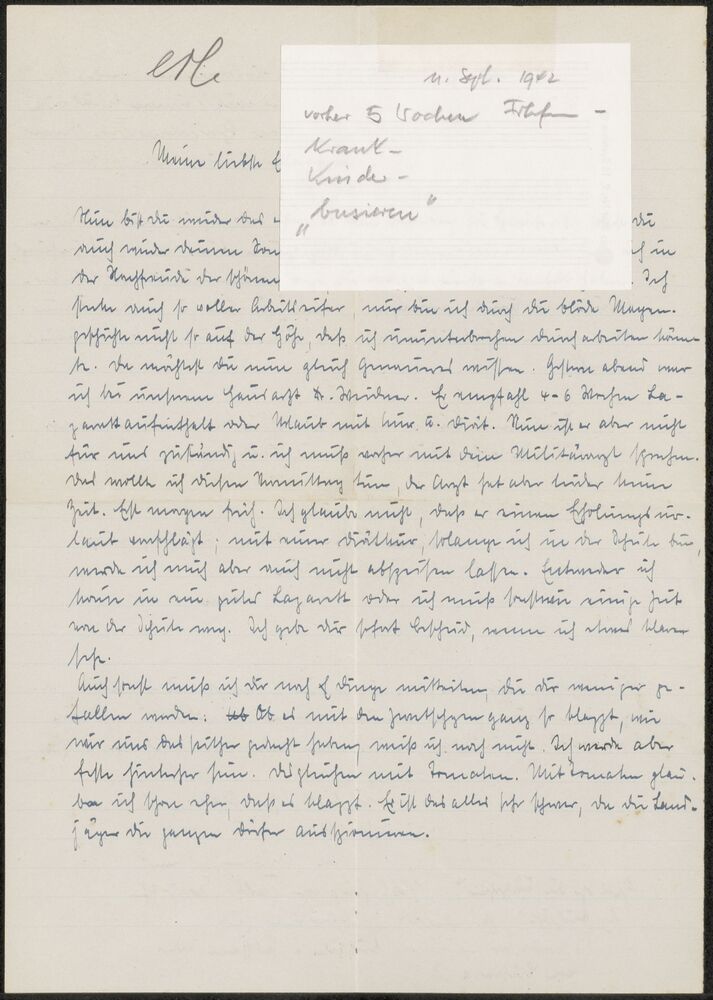 erl.
11. Sept. 1942
vorher 5 Wochen
Krank-
Kinder-
"busieren"
Meine liebste
Nun bist du wieder bei
auch wieder deinen
der Nachfreude der schönen
Ich
stecke auch so voller Arbeitseifer, nur bin ich durch die blöde Magen-
geschichte nicht so auf der Höhe, daß ich ununterbrochen durcharbeiten könn-
te. Da möchtest du nun gleich Genaueres wissen. Gestern abend war
ich bei unserem Hausarzt Dr. Weidner. Er empfahl 4-6 Wochen La-
zarettaufenthalt oder Urlaub mit Kur u. Diät. Nun ist er aber nicht
für uns zuständig u. ich muß vorher mit dem Militärarzt sprechen.
Das wollte ich diesen Vormittag tun, der Arzt hat aber leider keine
Zeit. Erst morgen früh. Ich glaube nicht, daß er einen Erholungsur-
laub vorschlägt; mit einer Diätkur, solange ich in der Schule bin,
werde ich mich aber auch nicht abspeisen lassen. Entweder ich
komme in ein gutes Lazarett oder ich muß sonstwie einige Zeit
von der Schule weg. Ich gebe dir sofort Bescheid, wenn ich etwas klarer
sehe.
Auch sonst muß ich dir noch Dinge mitteilen, die dir weniger ge-
fallen werden: Ob Ob es mit den Zwetschgen ganz so klappt, wie
wir uns das seither gedacht haben, weiß ich noch nicht. Ich werde aber
feste hinterher sein. Desgleichen mit Tomaten. Mit Tomaten glau-
be ich schon eher, daß es klappt. Es ist das alles sehr schwer, da die Land-
jäger die ganzen Dörfer ausspionieren.